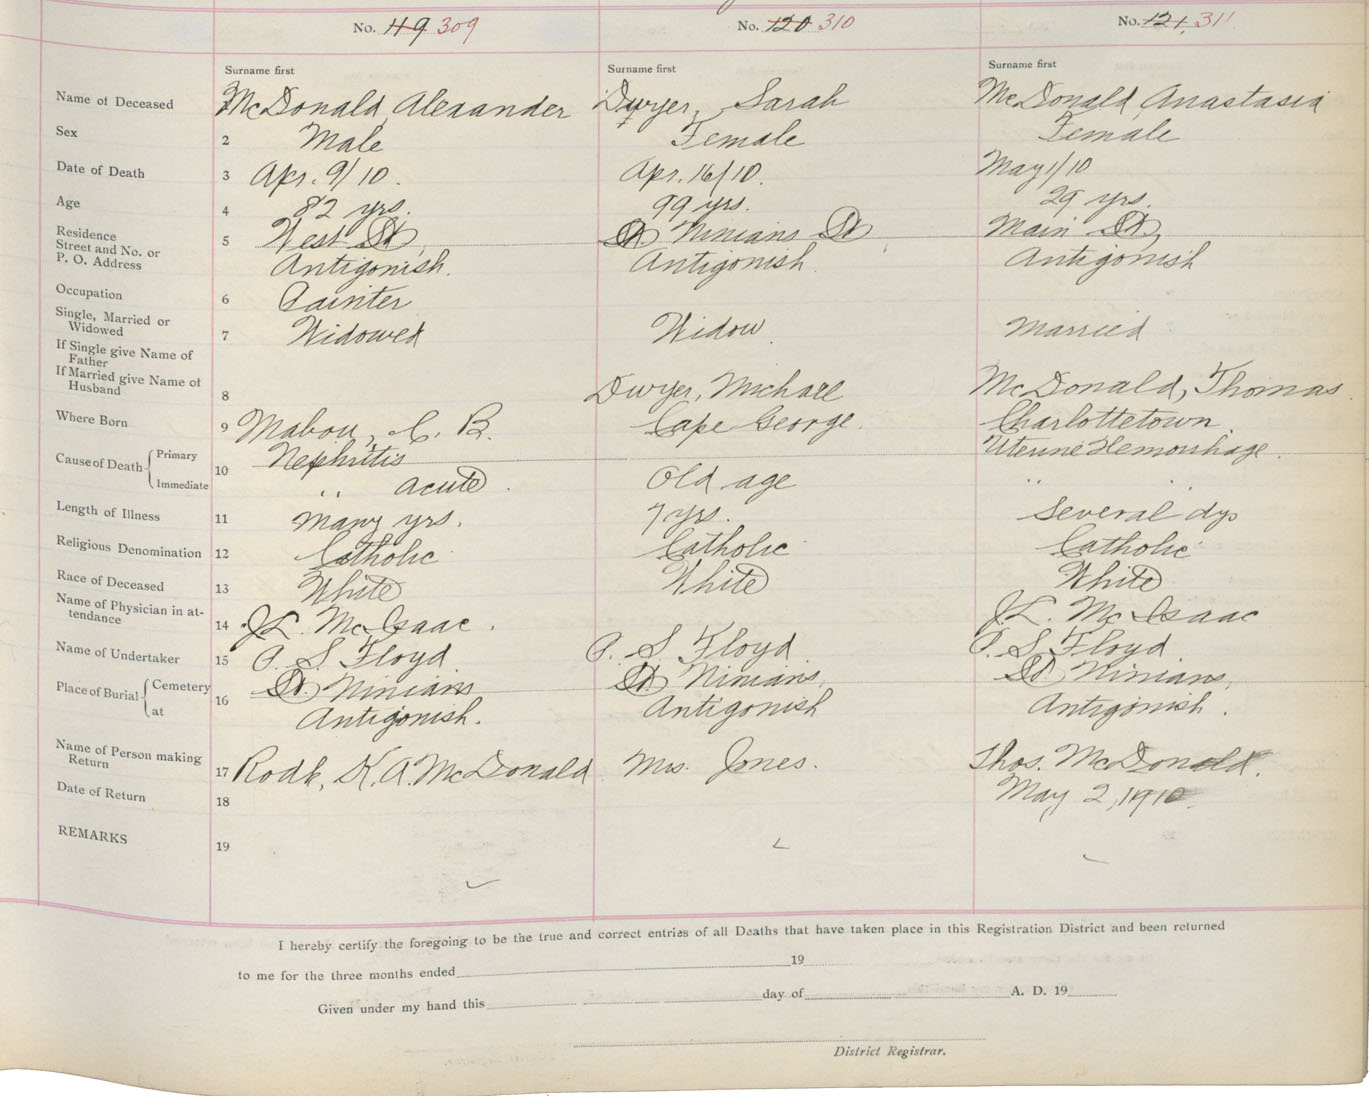 No. 119 309 No. 120 310 No. 121, 311
Surname first Surname first Surname first
Name of Deceased McDonald, Alexander Dwyer, Sarah McDonald, Anastasia
Sex 2 Male Female Female
Date of Death 3 Apr. 9/10. Apr. 16/10. May 1/10
Age 4 82 yrs. 99 yrs. 29 yrs.
Residence
Street and No. or
P. O. Address 5 West St, St Ninians St, Main St,
Antigonish. Antigonish. Antigonish
Occupation 6 Painter
Single, Married or
Widowed 7 Widowed Widow. Married
If Single give Name of
Father
If Married give Name of
Husband 8 Dwyer, Michael McDonald, Thomas.
Where Born 9 Mabou, C. B. Cape George. Charlottetown.
Cause of Death Primary Nephritis Uterine Hemorrhage.
Immediate 10 " Acute. Old age " "
Length of Illness 11 Many yrs. 7 yrs. Several dys
Religious Denomination 12 Catholic Catholic Catholic
Race of Deceased 13 White White White
Name of Physician in at-
tendance 14 J.L. McIsaac. J.L. McIsaac
Name of Undertaker 15 P. S. Floyd. P. S. Floyd. P. S. Floyd
Place of Burial Cemetery St. Ninians St. Ninians, St. Ninians,
at 16 Antigonish. Antigonish Antigonish.
Name of Person making
Return 17 Rodk, K. A. McDonald Mrs. Jones. Thos. McDonald.
Date of Return 18 May 2, 1910.
REMARKS 19
I hereby certify the foregoing to be the true and correct entries of all Deaths that have taken place in this Registration District and been returned
to me for the three months ended 19
Given under my hand this day of A. D. 19
District Registrar.